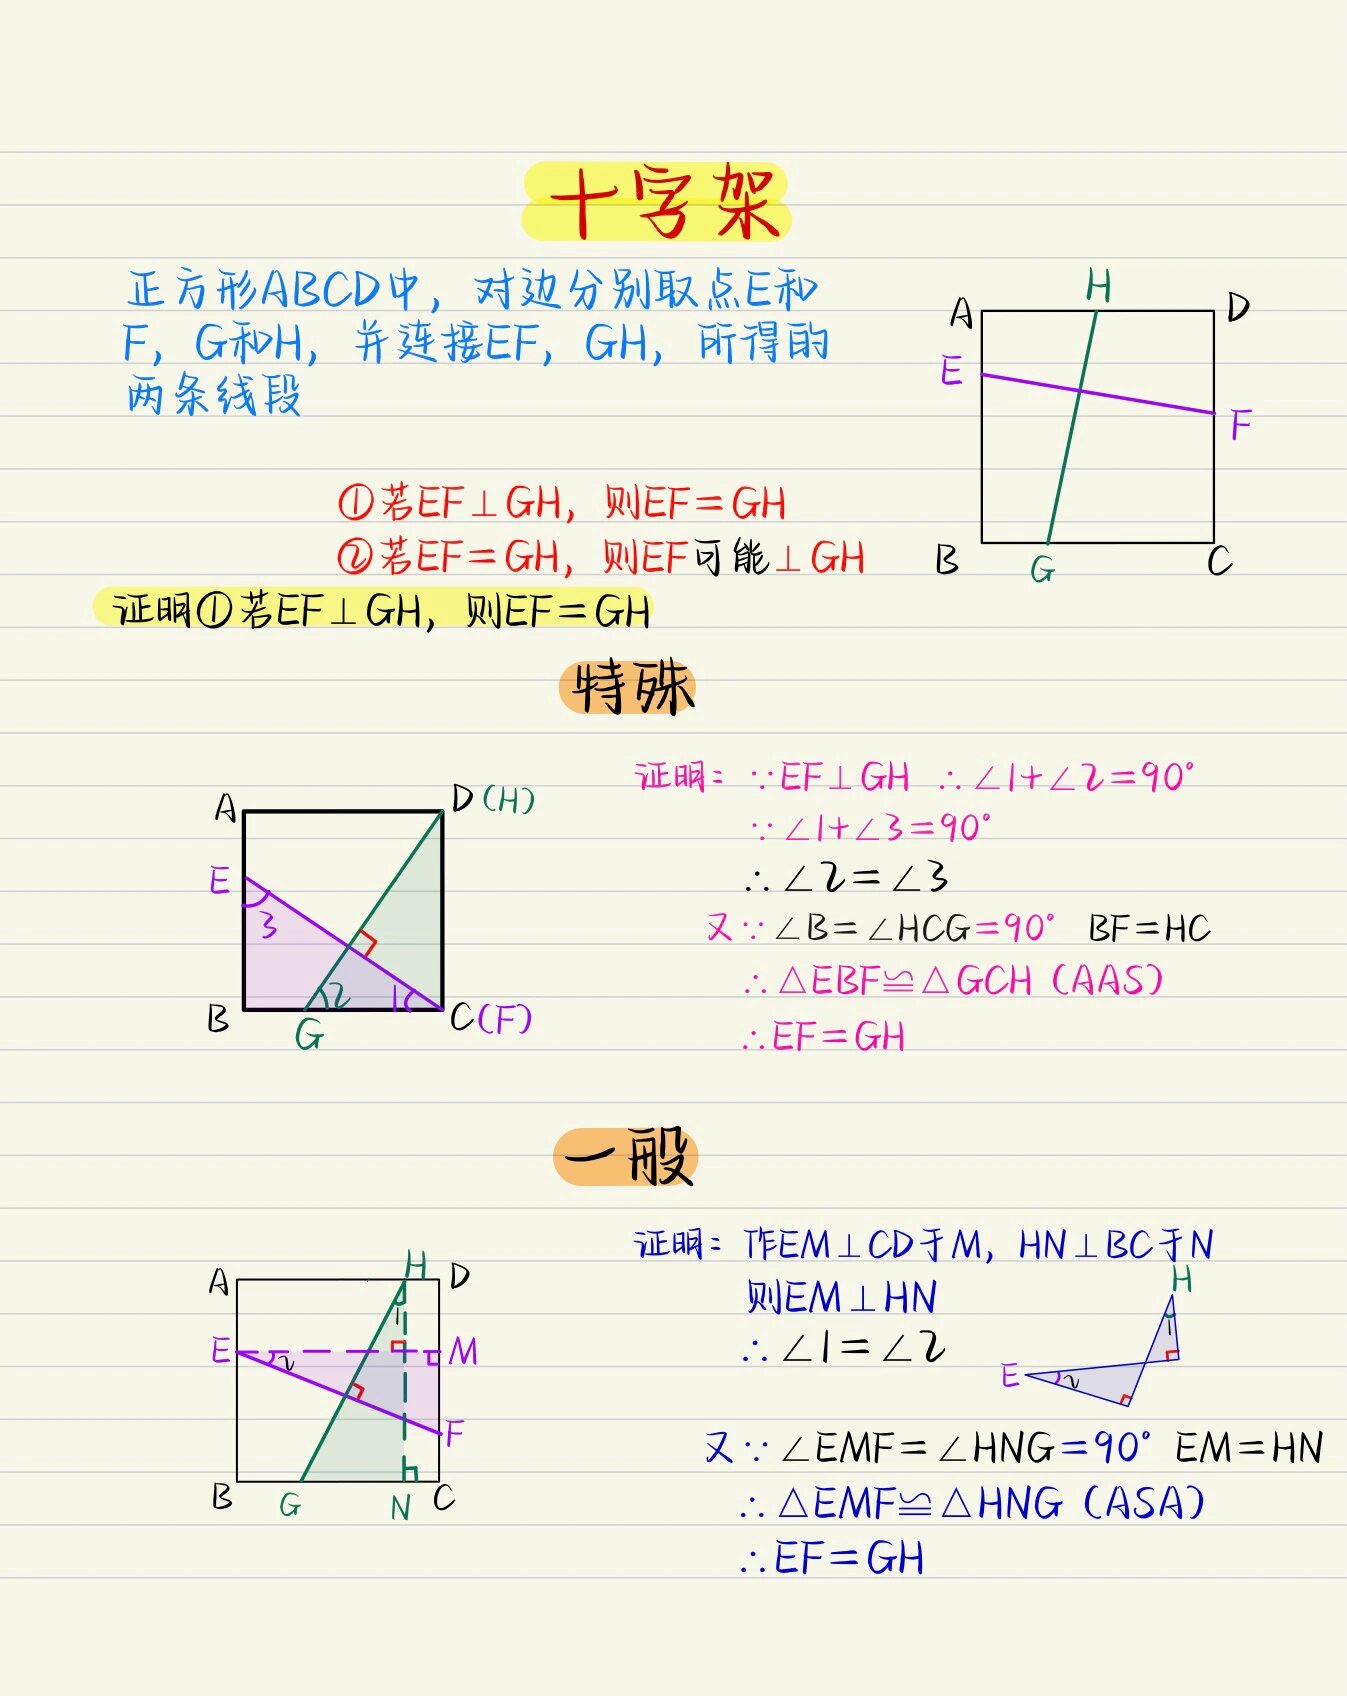 十字架
正方形ABCD中，对边分别取点E和
F，G和H，并连接EF，GH，所得的
两条线段
H
A
D
E
F
B
G
C
①若EF⊥GH，则EF=GH
②若EF=GH，则EF可能⊥GH
证明①若EF⊥GH，则EF=GH
特殊
A
D(H)
E
3
2
1
B
G
C(F)
证明：∵EF⊥GH ∴∠1+∠2=90°
∵∠1+∠3=90°
∴∠2=∠3
又∵∠B=∠HCG=90° BF=HC
∴△EBF≌△GCH（AAS）
∴EF=GH
一般
A
H
D
1
E
2
M
F
B
G
N
C
证明：作EM⊥CD于M，HN⊥BC于N
则EM⊥HN
∴∠1=∠2
H
1
E
2
又∵∠EMF=∠HNG=90° EM=HN
∴△EMF≌△HNG（ASA）
∴EF=GH